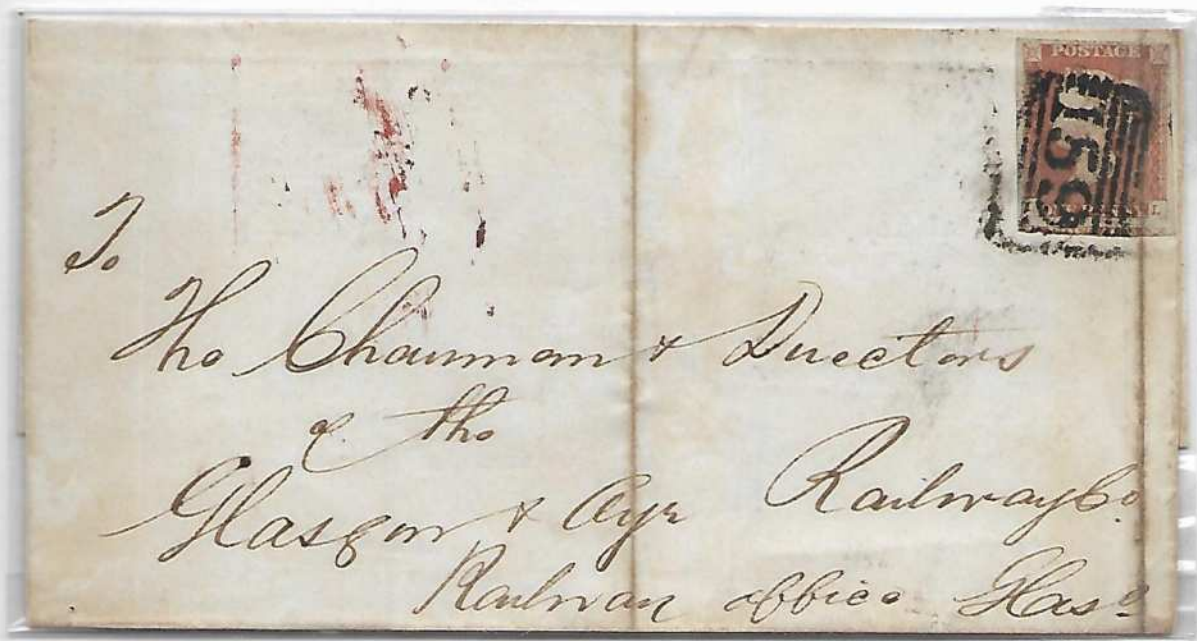 POSTAGE
159
To
The Chairman & Directors
of the
Glasgow & Ayr Railway Co
Railway office Glasº